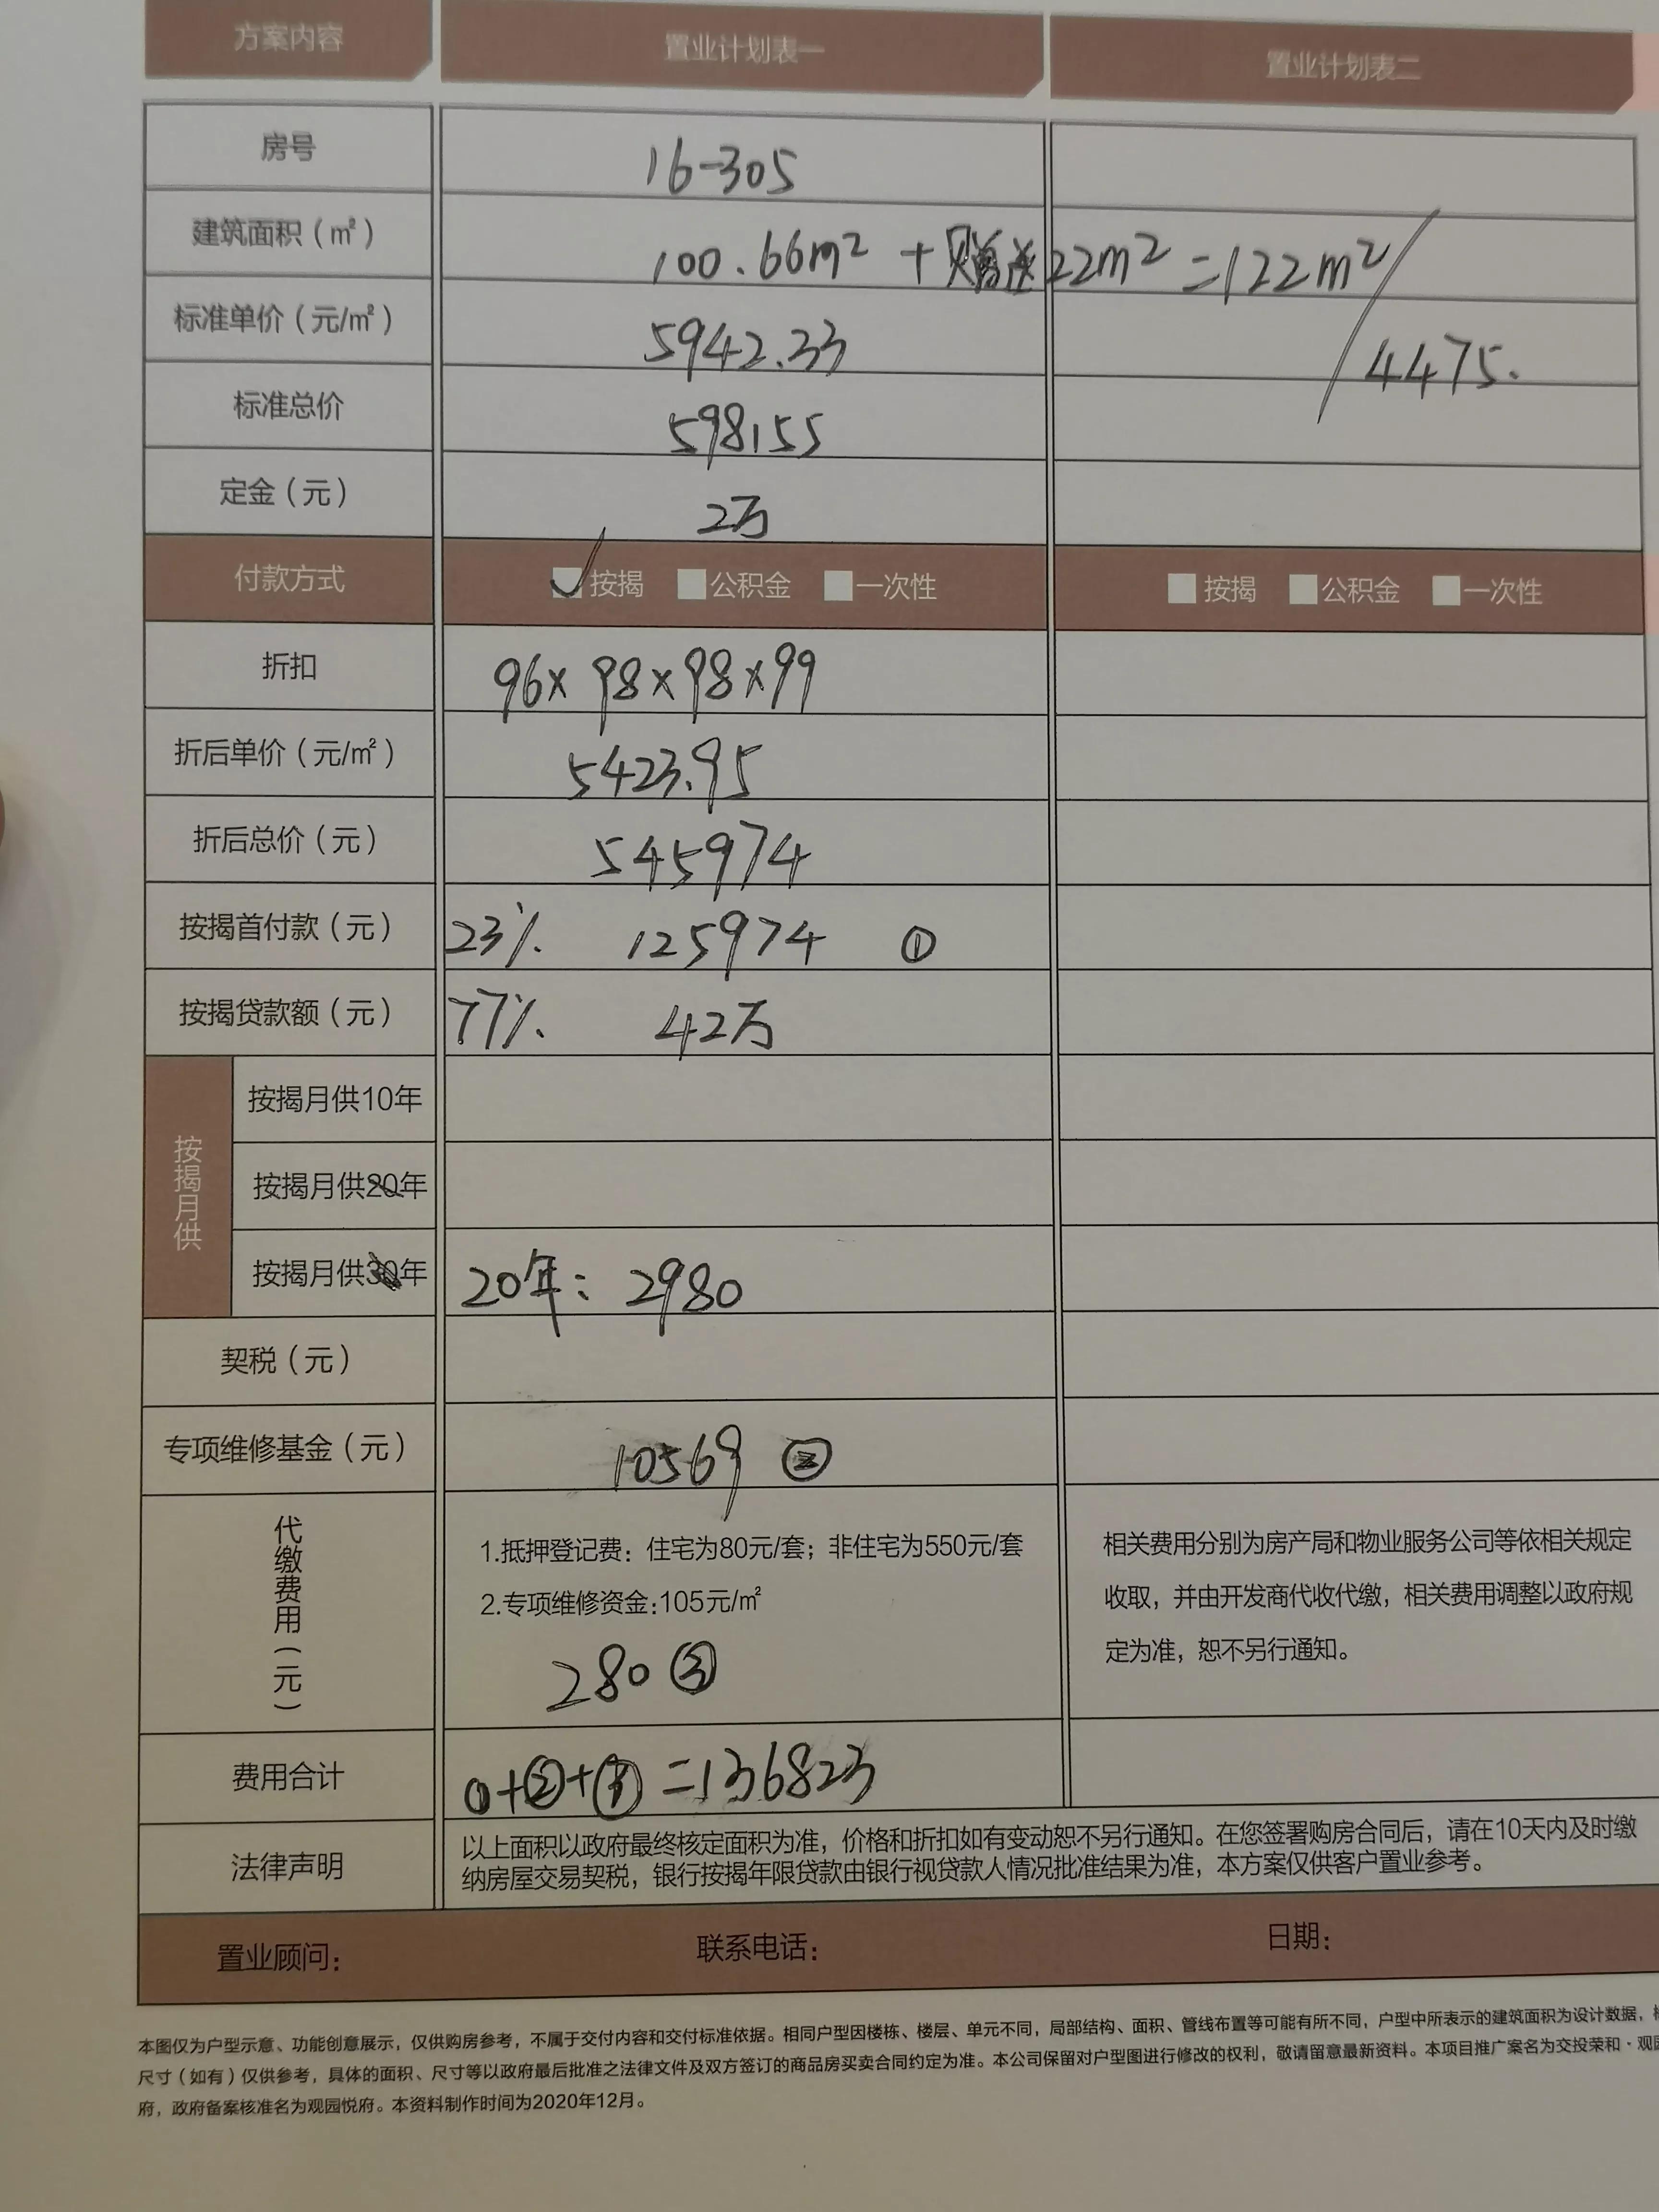 方案内容 置业计划表一 置业计划表二
房号 16-305
建筑面积（㎡） 100.66m² + 赠送22m² =122m²/
标准单价（元/㎡） 5942.33 4475.
标准总价 598155
定金（元） 2万
付款方式 按揭 公积金 一次性 按揭 公积金 一次性
折扣 96×98×98×99
折后单价（元/㎡） 5423.95
折后总价（元） 545974
按揭首付款（元） 23% 125974 ①
按揭贷款额（元） 77% 42万
按揭月供
按揭月供10年
按揭月供20年
按揭月供30年 20年：2980
契税（元）
专项维修基金（元） 10569 ②
代缴费用（元）
1.抵押登记费：住宅为80元/套；非住宅为550元/套
2.专项维修资金:105元/㎡
280 ③
相关费用分别为房产局和物业服务公司等依相关规定
收取，并由开发商代收代缴，相关费用调整以政府规
定为准，恕不另行通知。
费用合计 ①+②+③=136823
法律声明
以上面积以政府最终核定面积为准，价格和折扣如有变动恕不另行通知。在您签署购房合同后，请在10天内及时缴
纳房屋交易契税，银行按揭年限贷款由银行视贷款人情况批准结果为准，本方案仅供客户置业参考。
置业顾问： 联系电话： 日期：
本图仅为户型示意、功能创意展示，仅供购房参考，不属于交付内容和交付标准依据。相同户型因楼栋、楼层、单元不同，局部结构、面积、管线布置等可能有所不同，户型中所表示的建筑面积为设计数据，
尺寸（如有）仅供参考，具体的面积、尺寸等以政府最后批准之法律文件及双方签订的商品房买卖合同约定为准。本公司保留对户型图进行修改的权利，敬请留意最新资料。本项目推广案名为交投荣和·观园
府，政府备案核准名为观园悦府。本资料制作时间为2020年12月。